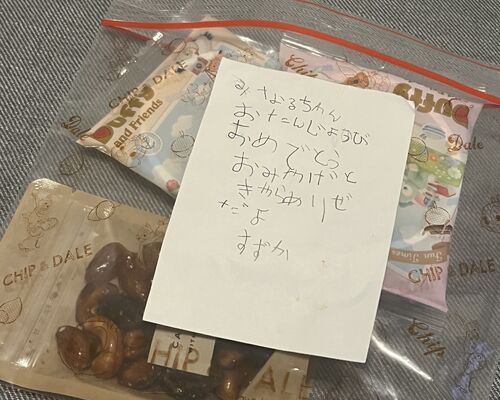 みさなるちゃん
おたんじょうび
おめでとう
おみやげと
きからめりぜ
だよ
すずか
Duffy
and Friends
CHIP & DALE
Duffy
Dale
Fun Times
CHIP & DALE
Chip
CHIP & DALE
HIP
ALE